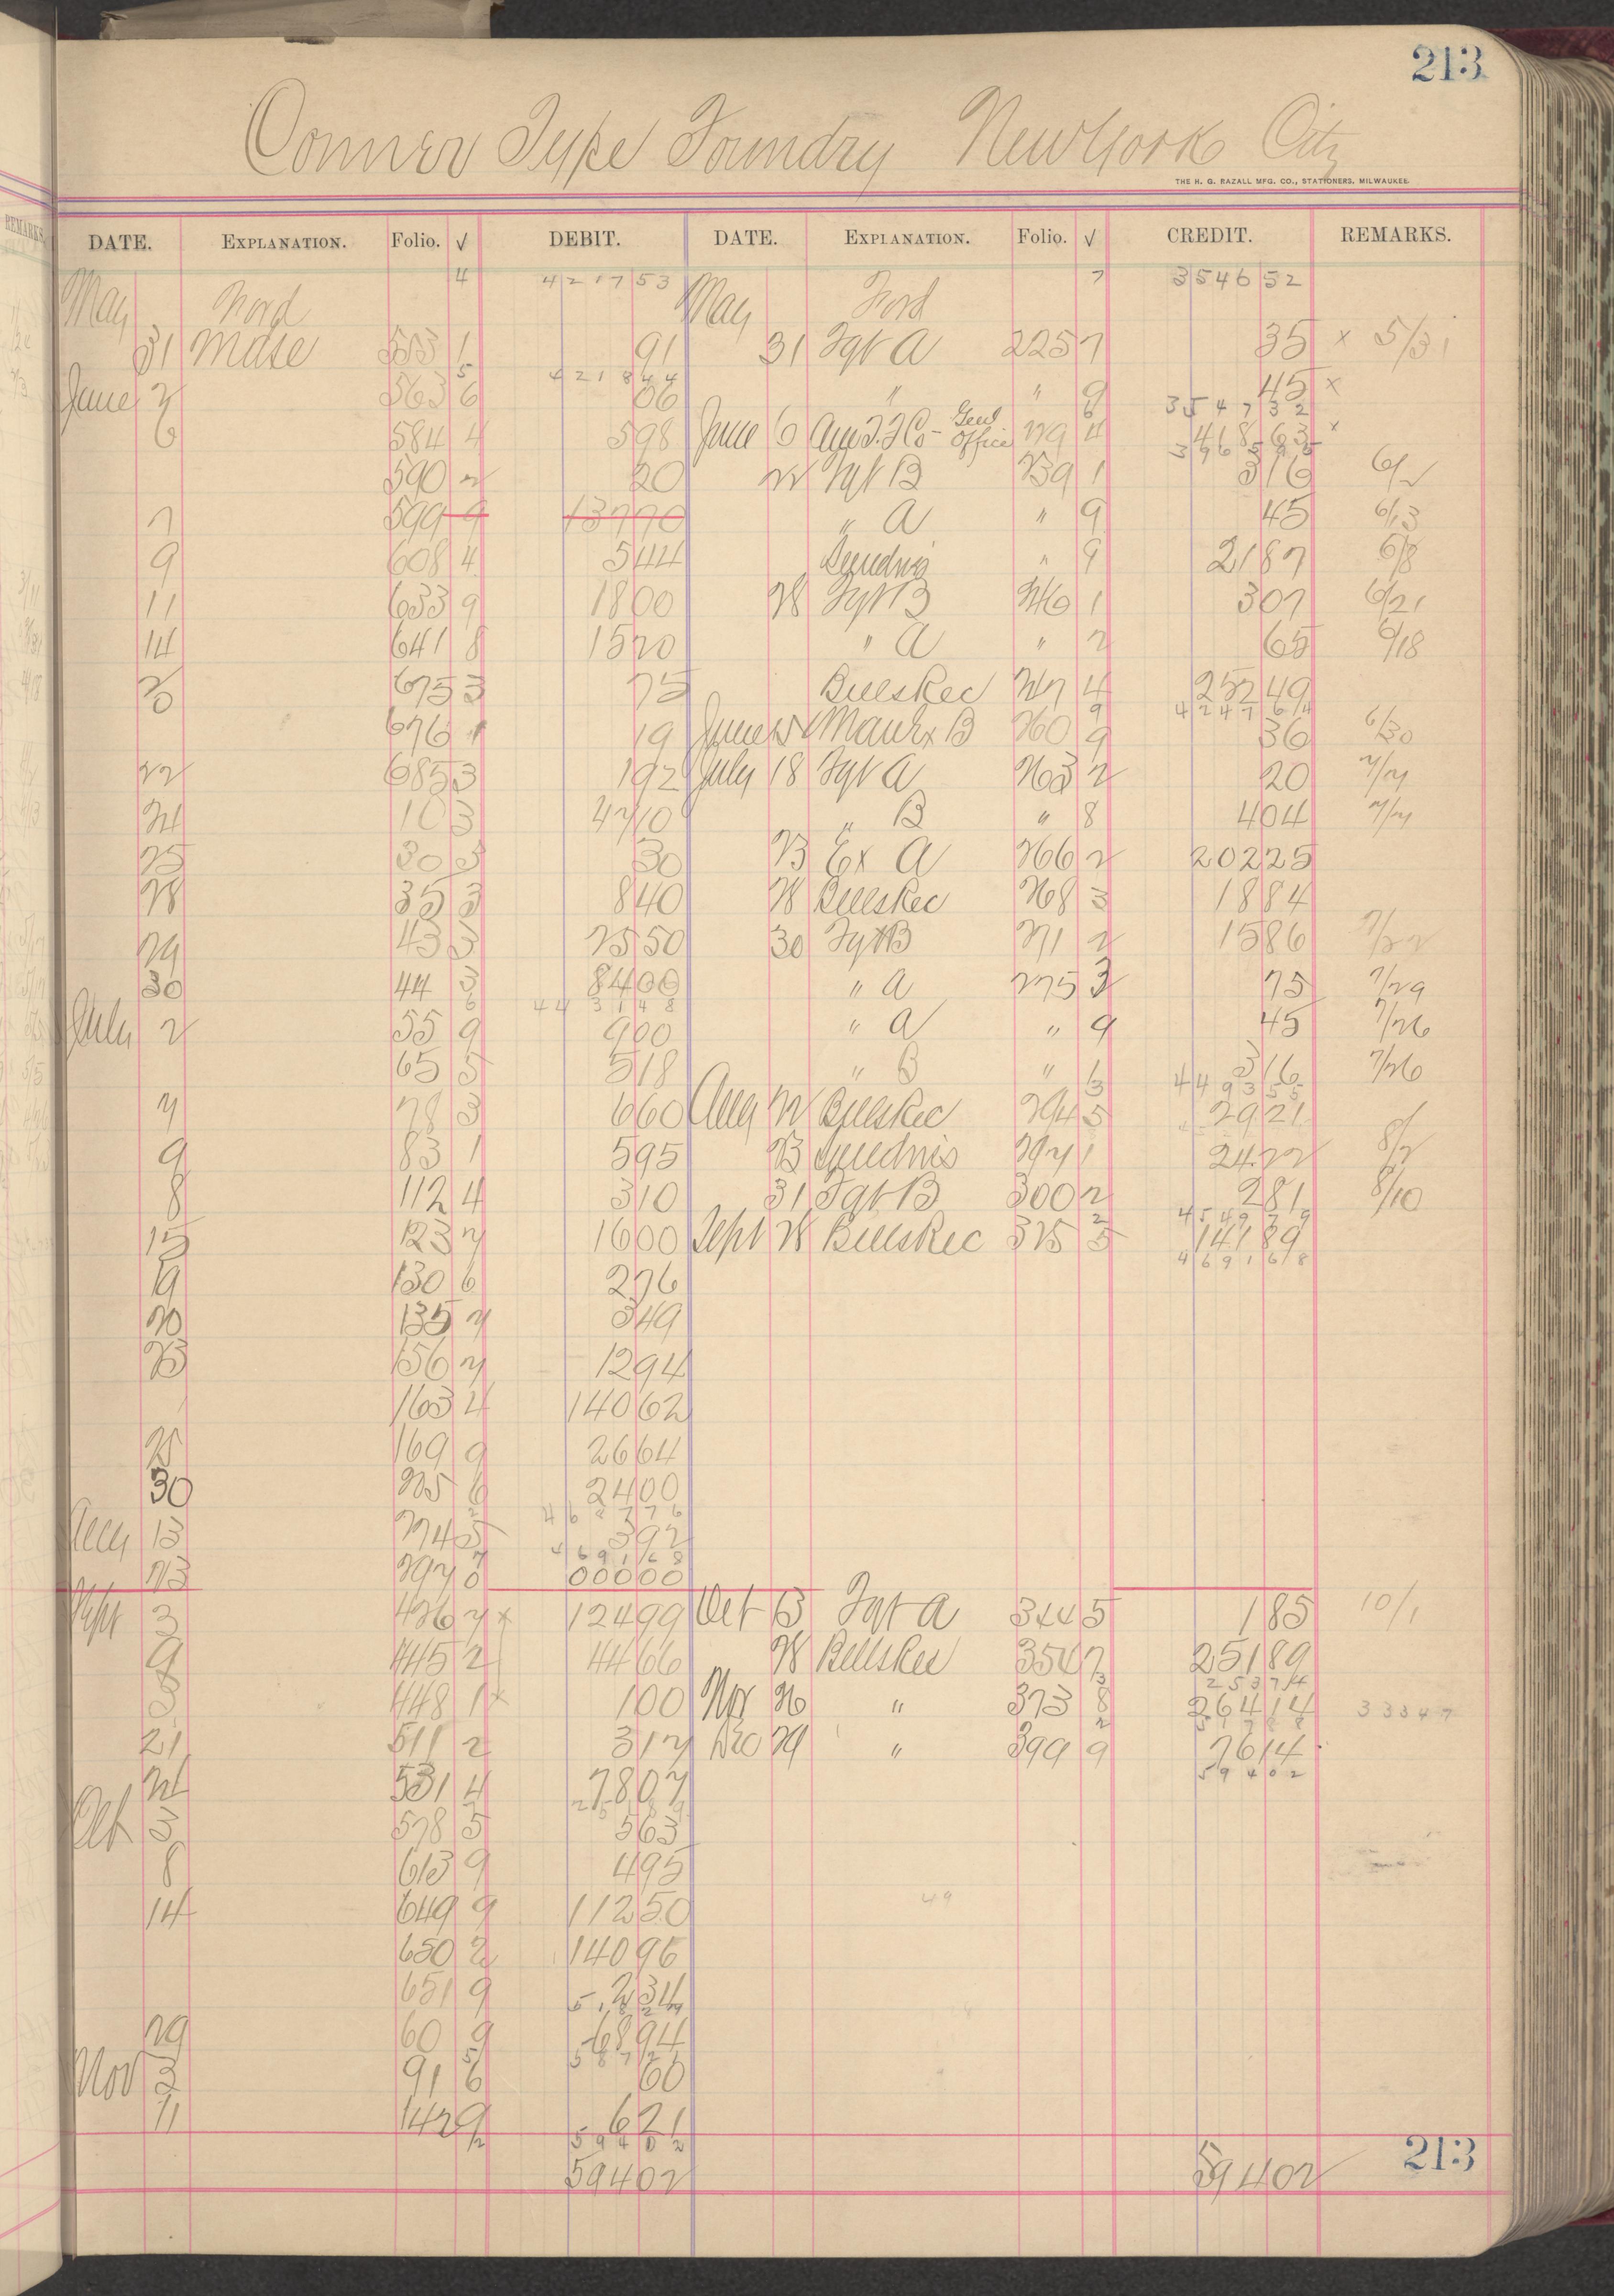 213
Conner Type Foundry New York City
THE H. G. RAZALL MFG. CO., STATIONERS, MILWAUKEE
DATE. EXPLANATION. Folio. √ DEBIT. DATE. EXPLANATION. Folio. √ CREDIT. REMARKS.
4 4217 53 7 3546 52
May Ford May Ford
31 Mdse 553 1 91 31 Fgt A 225 7 35 x 5/31
5 4218 44
June 2 563 6 66 " " 9 45 x
6 3547 32
6 584 4 5 98 June 6 Am T. F Co - Genl Office 229 4 418 63 x
3965 95
590 2 20 22 Fgt B 239 1 3 16 6/2
7 599 9 137 70 " A " 9 45 6/13
9 608 4 5 44 Sundries " 9 21 87 6/8
11 633 9 18 00 28 Fgt B 246 1 3 07 6/21
14 641 8 15 20 " A " 2 65 6/18
20 675 3 75 Bills Rec 247 4 252 49
9 4247 64
676 1 19 June 25 B 260 9 36 6/30
22 685 3 1 92 July 18 Fgt A 263 2 20 7/7
24 10 3 47 10 " B " 8 4 04 7/7
25 30 3 30 23 Ex A 266 2 202 25
28 35 3 8 40 28 Bills Rec 268 3 18 84
29 43 3 25 50 30 Fgt B 271 2 15 86 7/22
30 44 3 84 00 " A 275 3 75 7/29
6 4431 48
July 2 55 9 9 00 " A " 9 45 7/26
65 5 5 18 " B " 6 3 16 7/26
3 4493 55
7 78 3 6 60 Aug 22 Bills Rec 294 5 29 21
9 83 1 5 95 23 Sundries 297 1 24 22 8/2
8 112 4 3 10 31 Fgt B 300 2 2 81 8/10
2 4549 79
15 123 7 16 00 Sept 28 Bills Rec 325 5 141 89
4691 68
19 130 6 2 76
20 135 7 3 49
23 156 7 12 94
163 4 140 62
25 169 9 26 64
30 225 6 24 00
2 4687 76
Aug 13 274 5 3 92
7 4691 68
23 297 0 000 00
Sept 3 426 7 x 124 99 Oct 13 Fgt A 344 5 1 85 10/1
9 445 2 44 66 28 Bills Rec 354 7 251 89
3 253 74
3 448 1 x 1 00 Nov 26 " 373 8 264 14 333 47
2 517 88
21 511 2 3 17 Dec 29 " 399 9 76 14
594 02
24 531 4 78 07
251 89
Oct 3 578 5 5 63
8 613 9 4 95
14 649 9 112 50 49
650 2 140 96
651 9 2 34
29 60 9 68 94
5 587 21
Nov 3 91 6 60
11 142 9 6 21
2 594 02
594 02 594 02
213